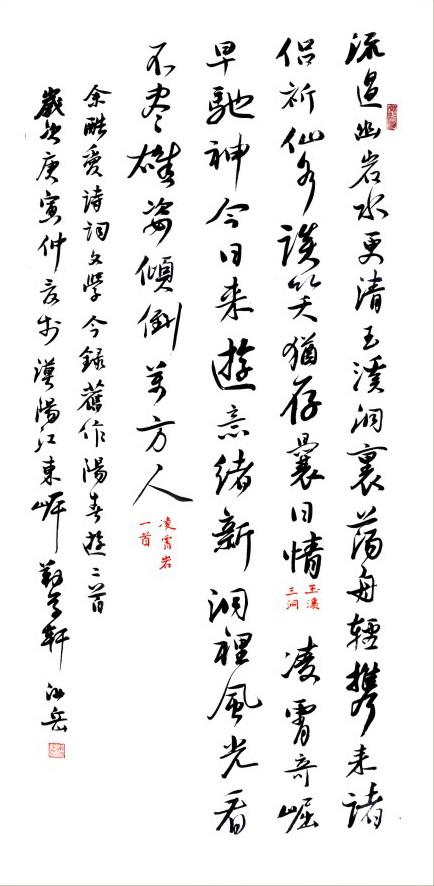 流過幽岩水更清玉溪洞裏蕩舟輕攜来諸
侶祈仙談笑猶存曩日情
玉溪
三洞
凌霄奇崛
早馳神今日来遊意緒新洞裡風光看
不盡雄姿傾倒萬方人
凌霄岩
一首
余酷愛詩詞文學今録舊作陽春遊二首
歲次庚寅仲於漠陽江東岸軒岳